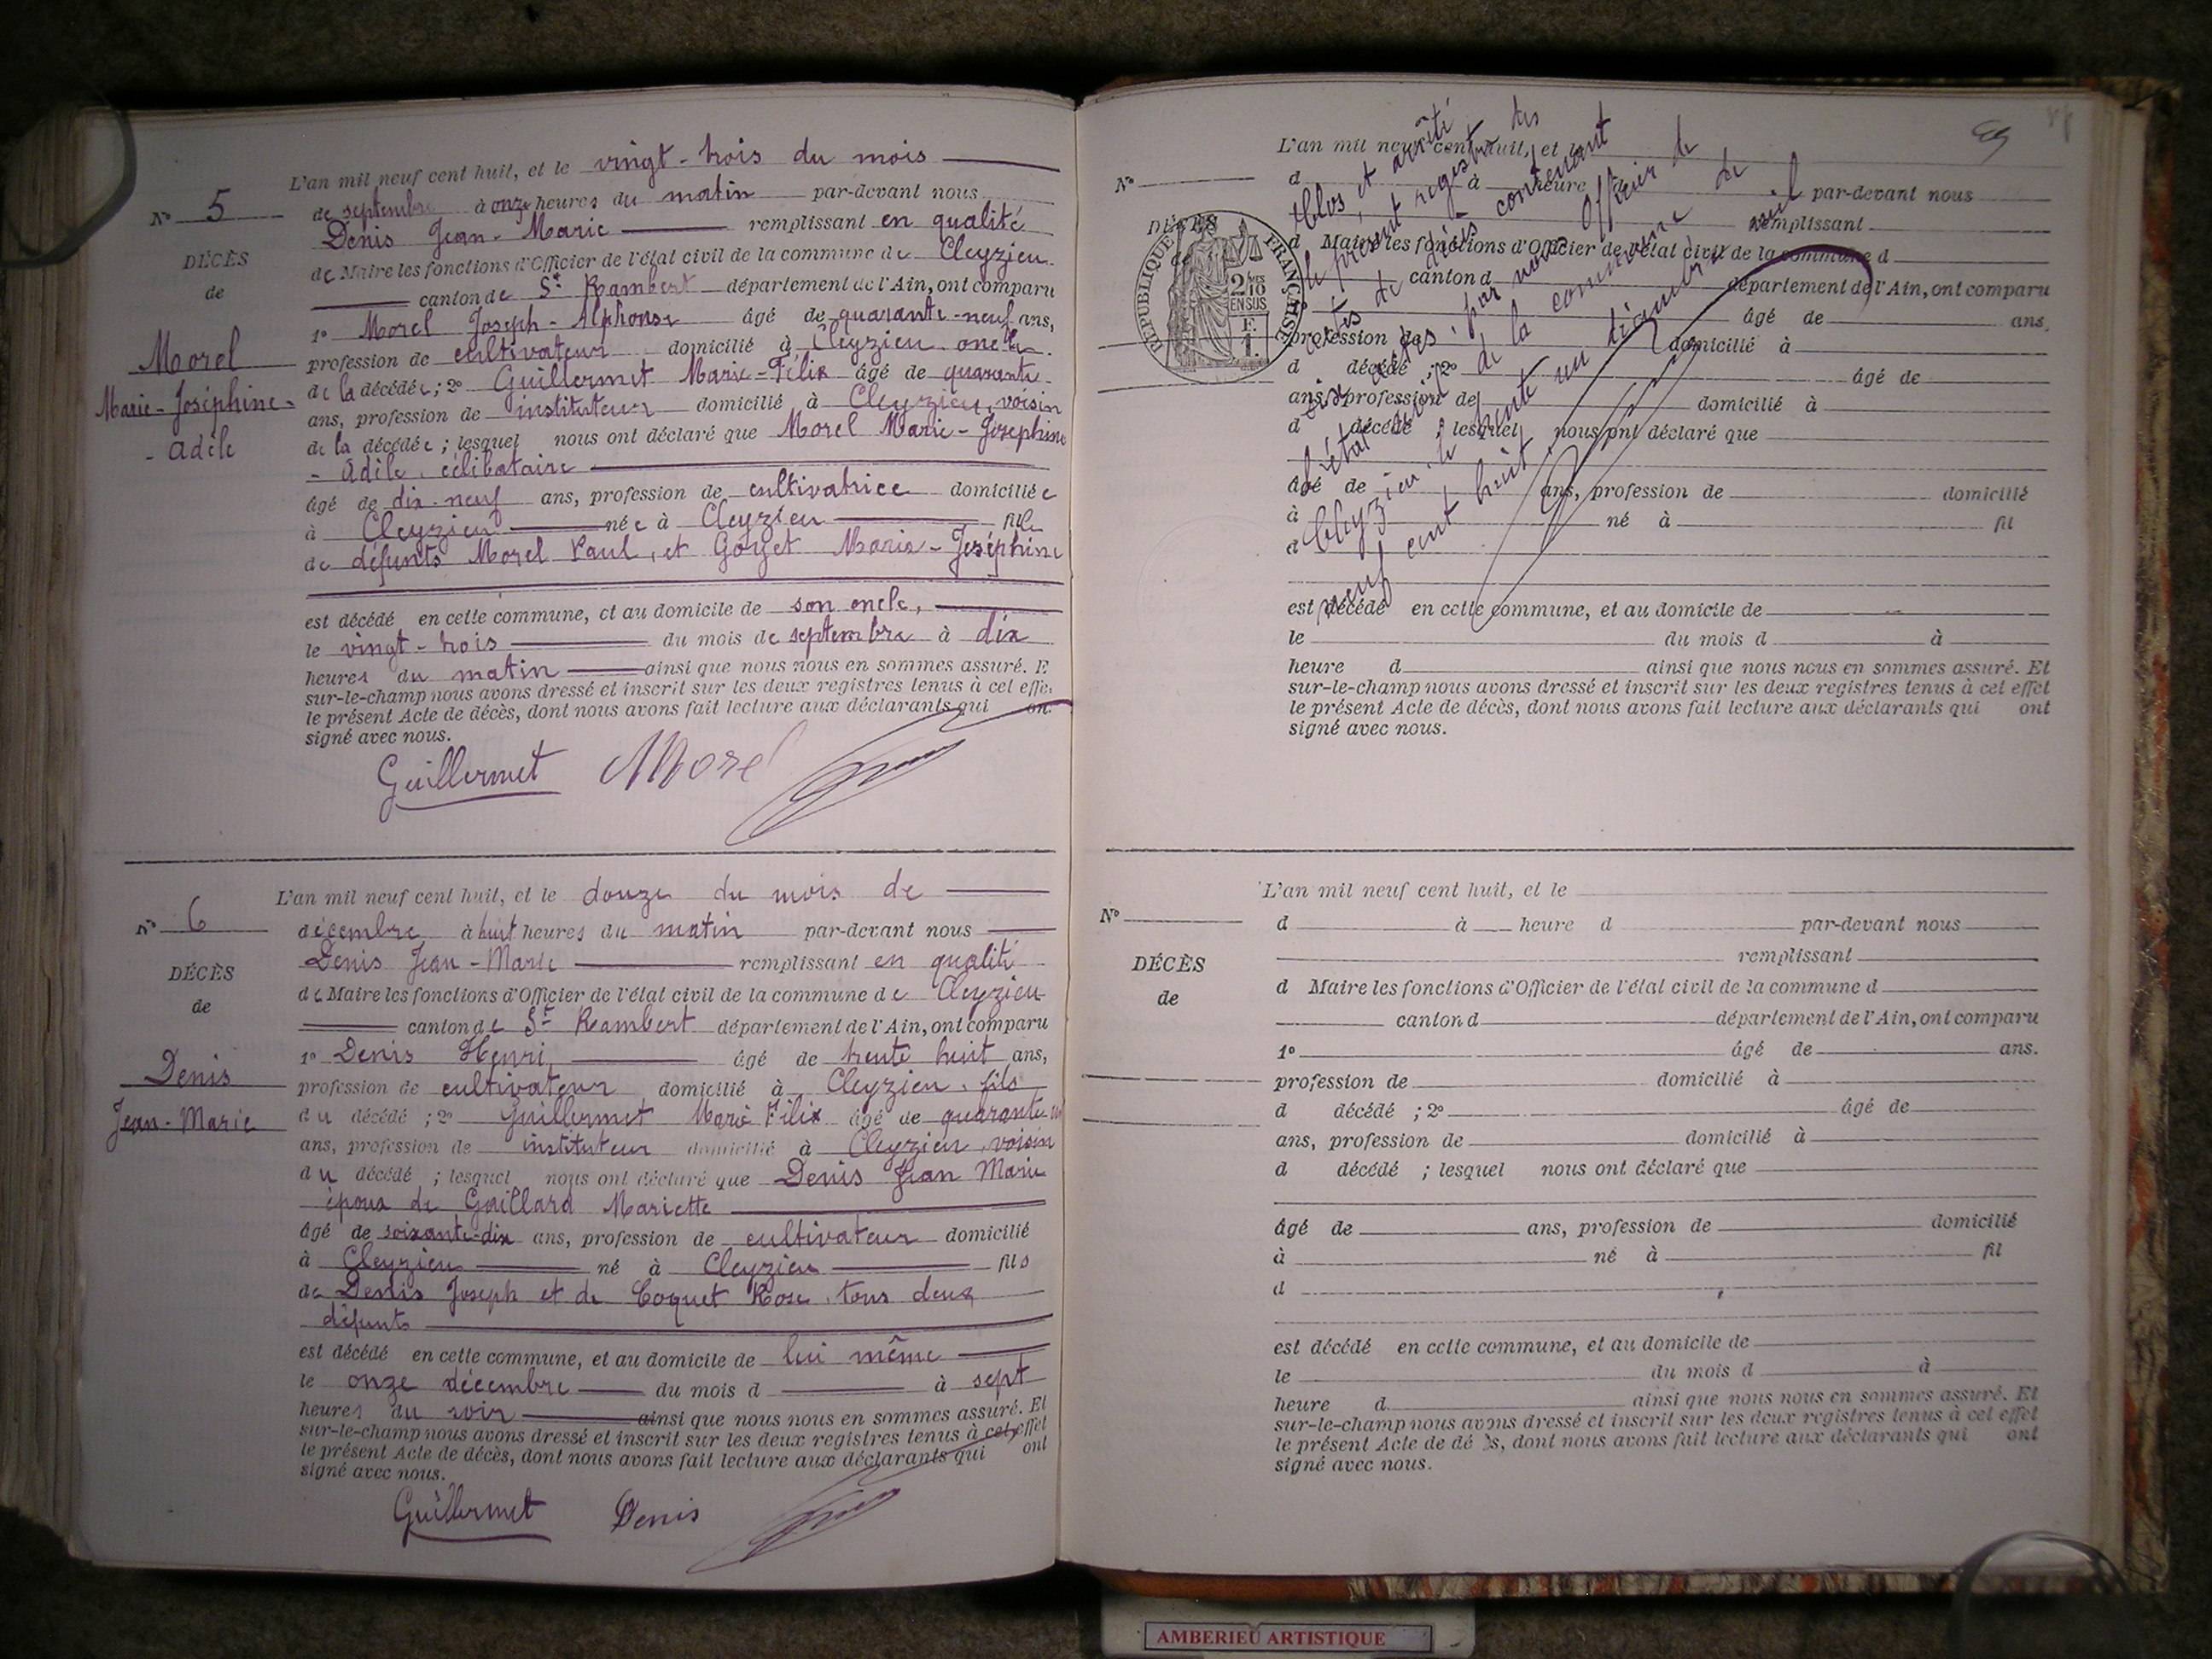 L'an mil neuf cent huit, et le vingt-trois du mois
N° 5
de septembre à onze heures du matin par-devant nous
Denis Jean-Marie remplissant en qualité
DÉCÈS
de Maire les fonctions d'Officier de l'état civil de la commune de Cleyzieu
de
canton de St Rambert département de l'Ain, ont comparu
1° Morel Joseph-Alphonse âgé de quarante-neuf ans,
Morel
profession de cultivateur domicilié à Cleyzieu oncle
Marie-Joséphine-
de la décédée; 2° Guillermet Marie-Félix âgé de quarante
ans, profession de instituteur domicilié à Cleyzieu, voisin
- Adèle
de la décédée; lesquel nous ont déclaré que Morel Marie-Joséphine
- Adèle, célibataire
âgé de dix-neuf ans, profession de cultivatrice domiciliée
à Cleyzieu née à Cleyzieu fille
de défunts Morel Paul, et Goyet Marie-Joséphine
est décédé en cette commune, et au domicile de son oncle,
le vingt-trois du mois de septembre à dix
heures du matin ainsi que nous nous en sommes assuré. E
sur-le-champ nous avons dressé et inscrit sur les deux registres tenus à cet effe
le présent Acte de décès, dont nous avons fait lecture aux déclarants qui on
signé avec nous.
Guillermet Morel
L'an mil neuf cent huit, et le douze du mois de
N° 6
décembre à huit heures du matin par-devant nous
Denis Jean-Marie remplissant en qualité
DÉCÈS
de Maire les fonctions d'Officier de l'état civil de la commune de Cleyzieu
de
canton de St Rambert département de l'Ain, ont comparu
1° Denis Henri âgé de trente huit ans,
Denis
profession de cultivateur domicilié à Cleyzieu, fils
Jean-Marie
du décédé; 2° Guillermet Marie Félix âgé de quarante-un
ans, profession de instituteur domicilié à Cleyzieu, voisin
du décédé; lesquel nous ont déclaré que Denis Jean Marie
époux de Gaillard Mariette
âgé de soixante-dix ans, profession de cultivateur domicilié
à Cleyzieu né à Cleyzieu fils
de Denis Joseph et de Coquet Rose, tous deux
défunts
est décédé en cette commune, et au domicile de lui même
le onze décembre du mois d à sept
heures du soir ainsi que nous nous en sommes assuré. Et
sur-le-champ nous avons dressé et inscrit sur les deux registres tenus à cet effet
le présent Acte de décès, dont nous avons fait lecture aux déclarants qui ont
signé avec nous.
Guillermet Denis
L'an mil neuf cent huit, et le
N°
d à heure d par-devant nous
remplissant
DÉCÈS
d Maire les fonctions d'Officier de l'état civil de la commune d
de
canton d département de l'Ain, ont comparu
âgé de ans,
profession de domicilié à
d décédé; 2° âgé de
ans, profession de domicilié à
d décédé; lesquel nous ont déclaré que
âgé de ans, profession de domicilié
à né à fil
d
est décédé en cette commune, et au domicile de
le du mois d à
heure d ainsi que nous nous en sommes assuré. Et
sur-le-champ nous avons dressé et inscrit sur les deux registres tenus à cet effet
le présent Acte de décès, dont nous avons fait lecture aux déclarants qui ont
signé avec nous.
Clos et arrêté
le présent registre des
actes de décès contenant
six actes, par nous Officier de
l'état civil de la commune de
Cleyzieu le trente un décembre mil
neuf cent huit
RÉPUBLIQUE FRANÇAISE
L'an mil neuf cent huit, et le
N°
d à heure d par-devant nous
remplissant
DÉCÈS
d Maire les fonctions d'Officier de l'état civil de la commune d
de
canton d département de l'Ain, ont comparu
1° âgé de ans.
profession de domicilié à
d décédé; 2° âgé de
ans, profession de domicilié à
d décédé; lesquel nous ont déclaré que
âgé de ans, profession de domicilié
à né à fil
d
est décédé en cette commune, et au domicile de
le du mois d à
heure d ainsi que nous nous en sommes assuré. Et
sur-le-champ nous avons dressé et inscrit sur les deux registres tenus à cet effet
le présent Acte de dé s, dont nous avons fait lecture aux déclarants qui ont
signé avec nous.
AMBERIEU ARTISTIQUE